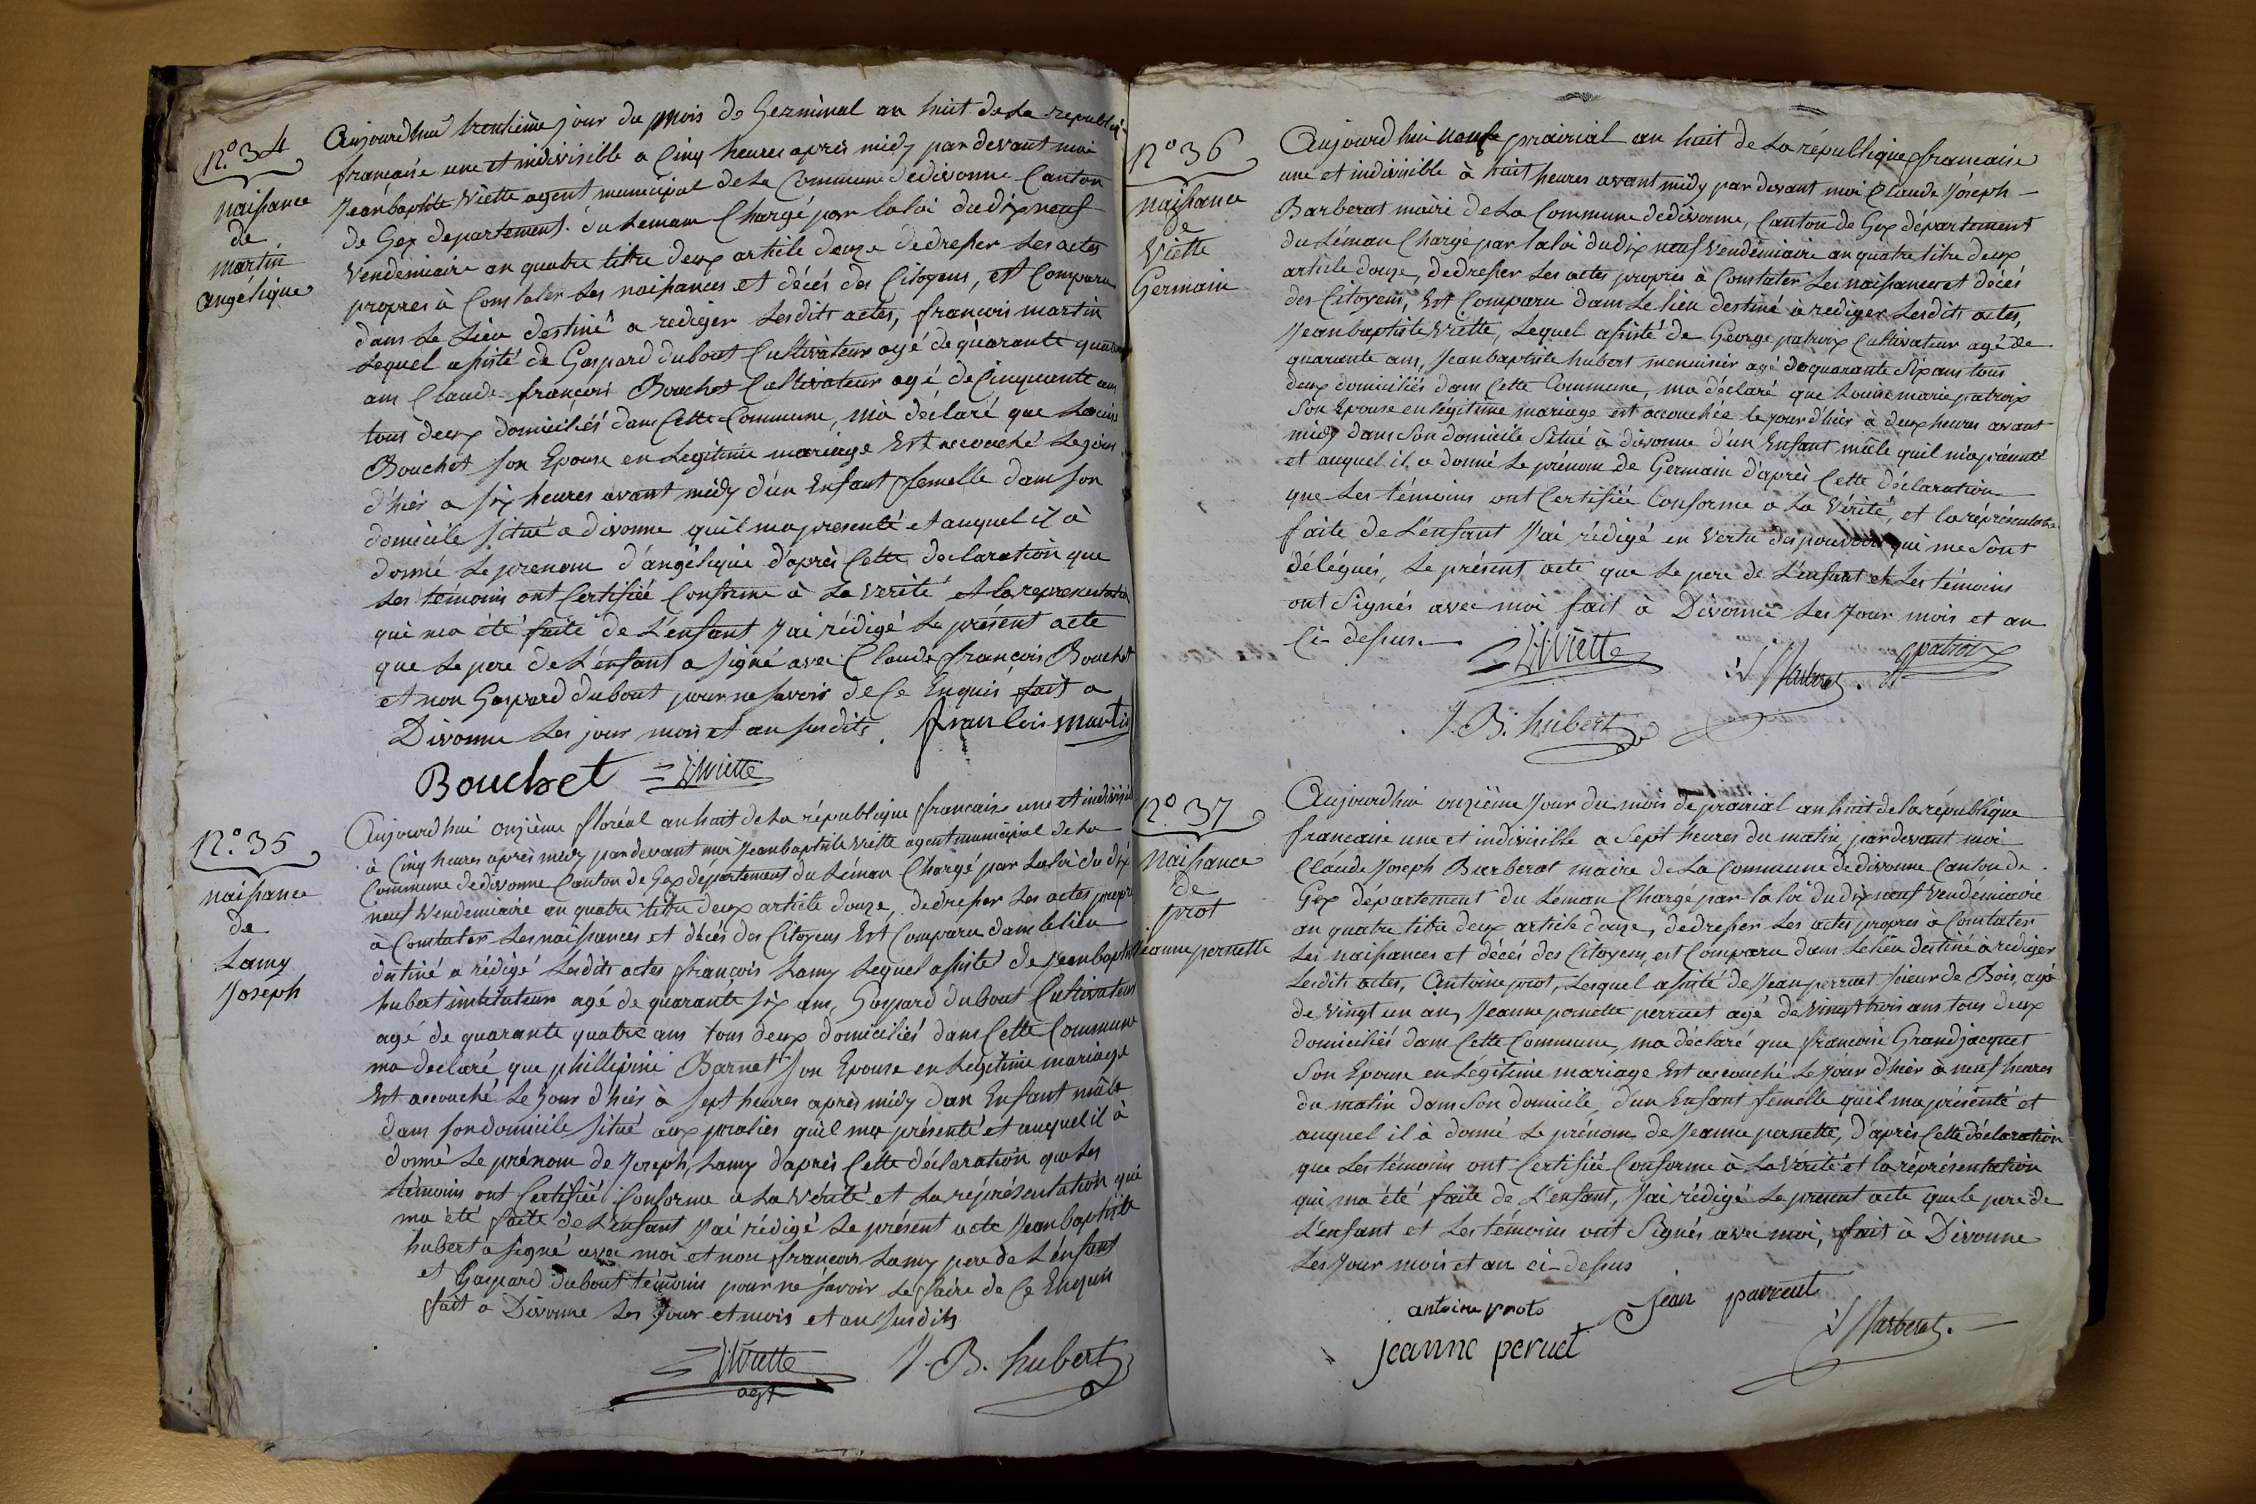 N.o 34
naissance
de
martin
angélique
Aujourd'hui trentième jour du mois de Germinal an huit de la républi
française une et indivisible a Cinq heures après midy par devant moi
Jean baptiste Viette agent municipal de la Commune de divonne Canton
de Gex département du Leman Chargé par la loi du dix neuf
Vendemiaire an quatre titre deux article douze de dresser Les actes
propres à Constater Les naissances et décés des Citoyens, est Comparu
dans Le Lieu destiné a rediger Lesdits actes, françois martin
Lequel assisté de Gaspard dubout Cultivateur agé de quarante quatre
ans Claude françois Bouchet Cultivateur agé de Cinquante ans
tous deux domiciliés dans Cette Commune, m'a déclaré que
Bouchet son Epouse en Legitime mariage Est accouché Le jour
d'hier a six heures avant midy d'un Enfant femelle dans son
domicile situé a divonne qu'il ma presenté et auquel il à
donné Le prenom d'angélique d'après Cette declaration que
Les témoins ont Certifiée Conforme à La vérité et la representation
qui ma été faite de L'enfant J'ai rédigé Le présent acte
que Le pere de L'enfant a signé avec Claude françois Bouchet
et non Gaspard dubout pour ne savoir de Ce Enquis fait a
Divonne Les jour mois et an susdits. francois martin
Bouchet JBViette
N.o 35
naissance
de
Lamy
Joseph
Aujourd'hui onzième floréal an huit de La république française une et indivisi
à Cinq heures après midy par devant moi Jean baptiste Viette agent municipal de La
Commune de divonne Canton de Gex département du Léman Chargé par La loi du dix
neuf Vendemiaire an quatre titre deux article douze, de dresser Les actes propre
à Constater Les naissances et décés des Citoyens Est Comparu dans le lieu
destiné a rédigé Lesdits actes françois Lamy Lequel assisté de Jean baptiste
hubert instituteur agé de quarante six ans, Gaspard dubout Cultivateur
agé de quarante quatre ans tous deux domiciliés dans Cette Commune
ma declaré que phillipine Barnet son Epouse en Legitime mariage
Est accouché Le Jour d'hier à sept heures après midy d'un Enfant mâle
dans son domicile situé aux qu'il ma présenté et auquel il à
donné Le prénom de Joseph Lamy d'après Cette déclaration que Les
témoins ont Certifiée Conforme a La vérité et La réprésentation qui
ma été faite de L'enfant J'ai rédigé Le présent acte Jean baptiste
hubert a signé avec moi et non françois Lamy pere de L'énfant
et Gaspard dubout témoins pour ne savoir Le faire de Ce Enquis
fait a Divonne Les Jour et mois et an susdits
JBViette J. B. hubert
agt
N.o 36
naissance
de
Viette
Germain
Aujourd'hui neuf prairial an huit de La république française
une et indivisible à huit heures avant midy par devant moi Claude Joseph
Barberat maire de La Commune de divonne, Canton de Gex département
du Léman Chargé par la loi du dix neuf Vendémiaire an quatre titre deux
article douze, de dresser Les actes propres à Constater Les naissances et décés
des Citoyens, Est Comparu dans Le lieu destiné à rediger Lesdits actes,
Jean baptiste Viette, Lequel assisté de George patroix Cultivateur agé de
quarante ans, Jean baptiste hubert menuisier agé de quarante six ans tous
deux domiciliés dans Cette Commune, ma déclaré que Louise marie patroix
Son Epouse en légitime mariage est accouchée le jour d'hier à deux heures avant
midy dans Son domicile Situé à divonne d'un Enfant mâle qu'il m'a présenté
et auquel il a donné Le prénom de Germain d'après Cette déclaration
que Les témoins ont Certifiée Conforme a La Vérité, et la réprésentation
faite de L'énfant J'ai rédigé en Vertu des pouvoirs qui me Sont
délégués, Le présent acte que Le pere de L'enfant et Les témoins
ont Signés avec moi fait à Divonne Les Jour mois et an
Ci-dessus
JBViette
Gpatroix
CJ Barberat.
J. B. hubert
N.o 37
Naissance
de
prot
jeanne pernette
Aujourd'hui onzième Jour du mois de prairial an huit de la république
française une et indivisible a Sept heures du matin, par devant moi
Claude Joseph Barberat maire de La Commune de divonne Canton de
Gex département du Léman Chargé par la loi du dix neuf Vendémiaire
an quatre titre deux article douze, de dresser Les actes propres à Constater
Les naissances et décés des Citoyens, est Comparu dans Le lieu destiné à rediger
Lesdits actes, Antoine prot, Lequel assisté de Jean perruet sieur de Bois, agé
de vingt un an, Jeanne pernette perruet agé de vingt trois ans tous deux
domiciliés dans Cette Commune, ma déclaré que françoise Grandjacquet
Son Epouse en Légitime mariage Est accouché Le jour d'hier à neuf heures
du matin dans Son domicile, d'un Enfant femelle qu'il ma présenté et
auquel il à donné Le prénom de Jeanne pernette, d'après Cette déclaration
que Les témoins ont Certifiée Conforme à La Vérité et la réprésentation
qui ma été faite de L'enfant, J'ai rédigé Le present acte que le pere de
L'enfant et Les témoins ont Signés avec moi, fait à Divonne
Les Jour mois et an ci-dessus
antoine proto jean perruet
jeanne peruet
CJ Barberat.